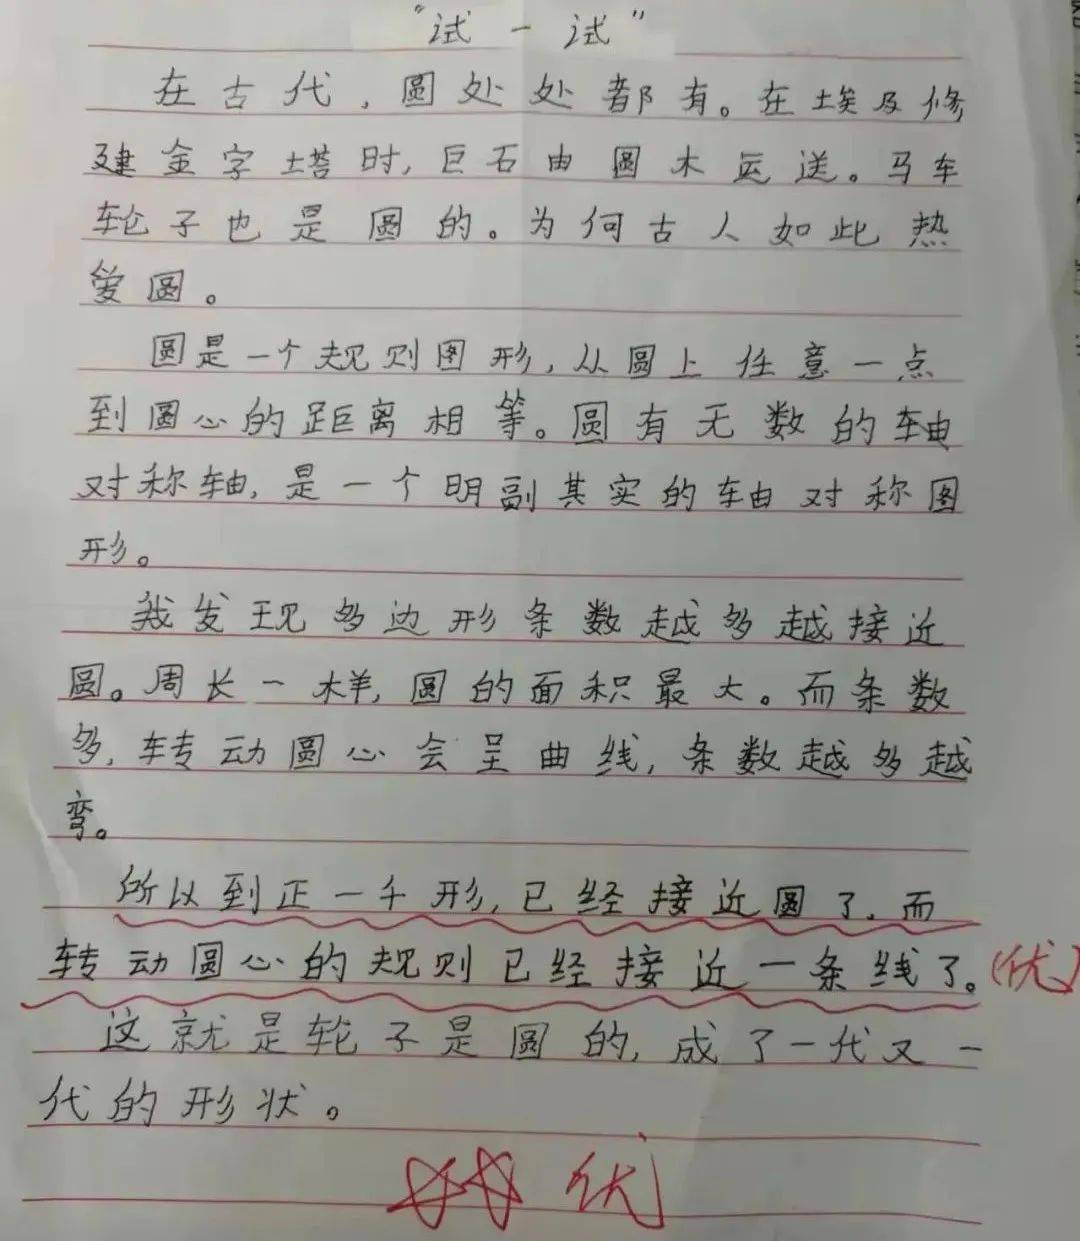 “试一试”
在古代,圆处处都有。在埃及修
建金字塔时,巨石由圆木运送。马车
轮子也是圆的。为何古人如此热
爱圆。
圆是一个规则图形,从圆上任意一点
到圆心的距离相等。圆有无数的轴
对称轴,是一个明副其实的轴对称图
形。
我发现多边形条数越多越接近
圆。周长一样,圆的面积最大。而条数
多,转动圆心会呈曲线,条数越多越
弯。
所以到正一千形,已经接近圆了.而
转动圆心的规则已经接近一条线了。(优)
这就是轮子是圆的,成了一代又一
代的形状。
优